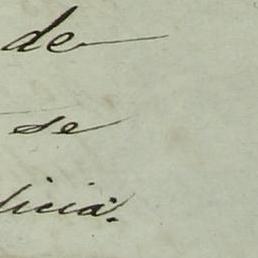 de
se
licia.